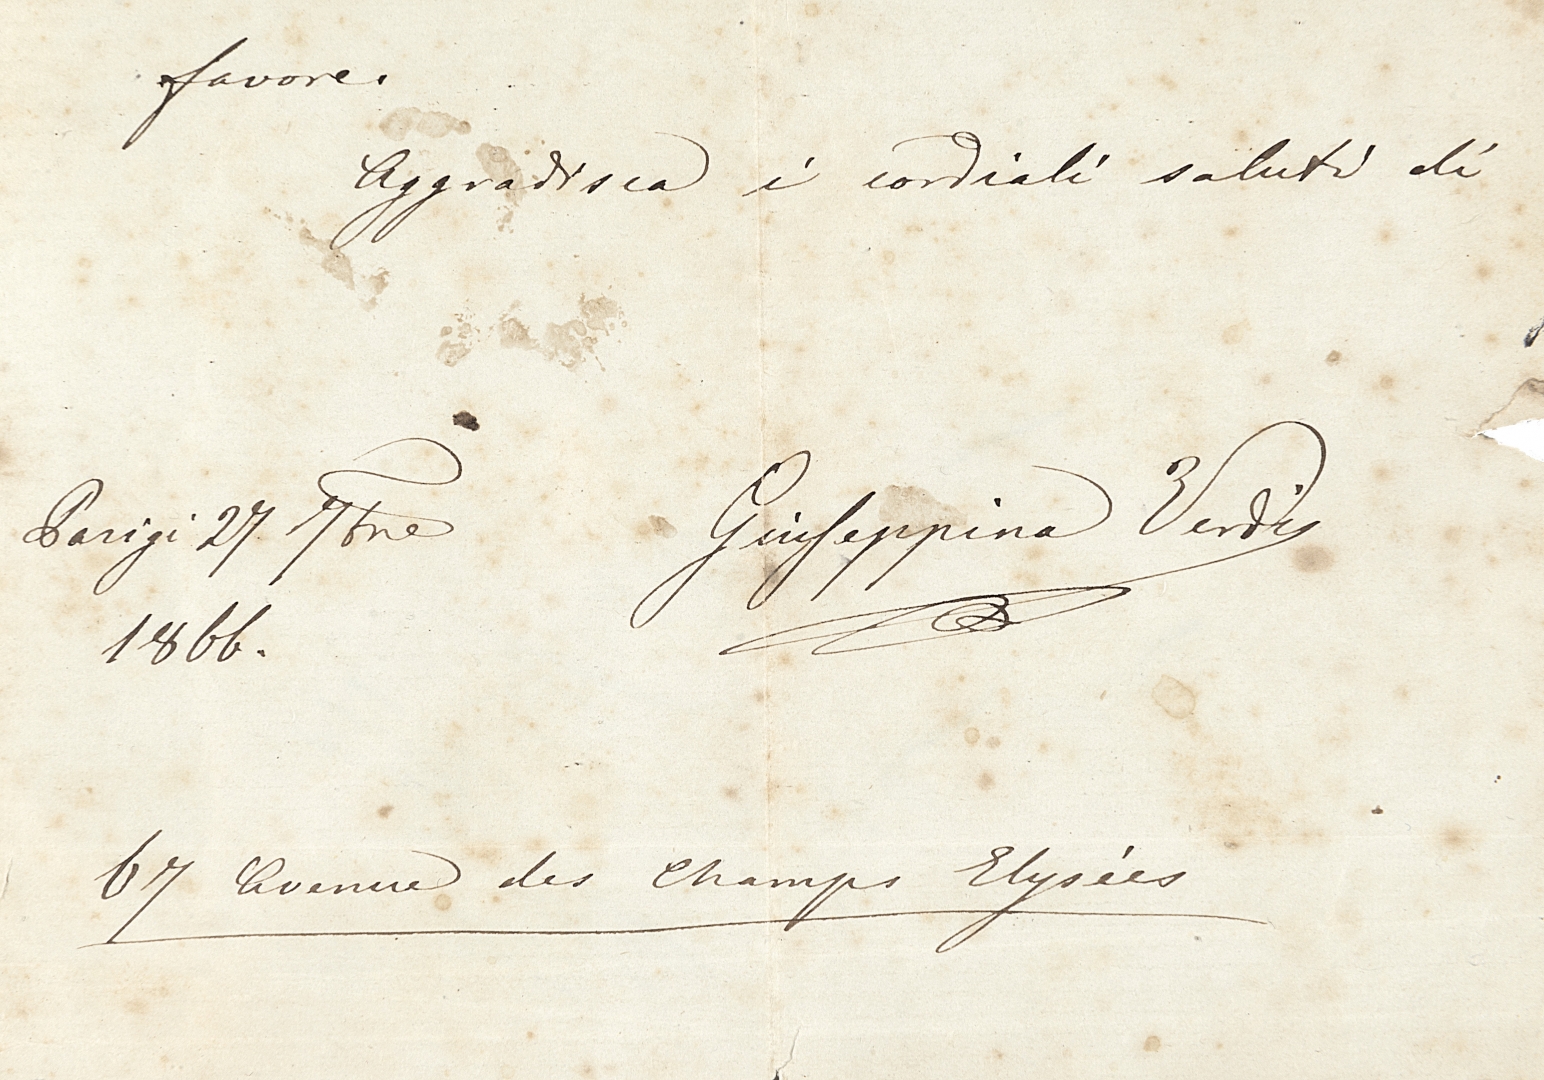 favore.
Aggradisca i cordiali saluti di
Parigi 27 7bre
Giuseppina Verdi
1866.
67 Avenue des Champs Elysées